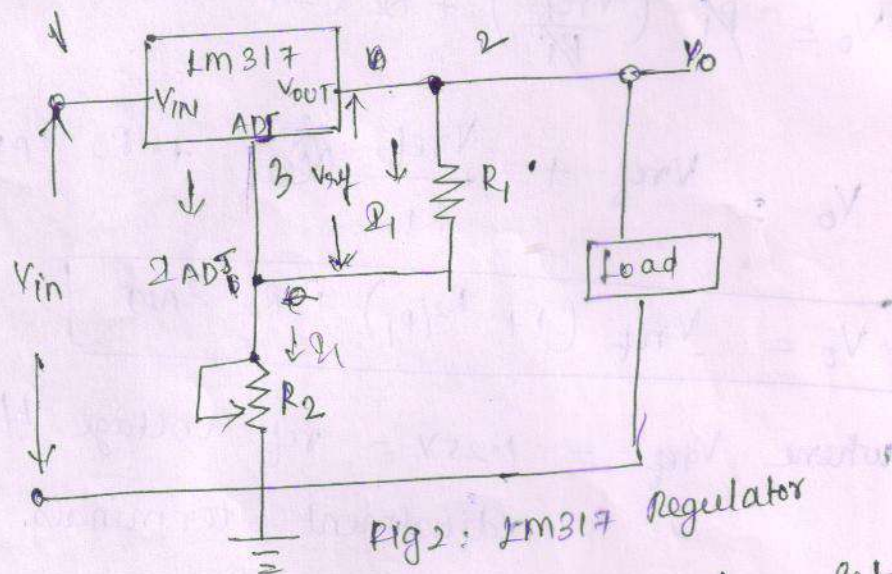 LM317
VIN
VOUT
ADJ
2
Vo
3
Vref
I1
R1
Vin
IADJ
Load
I1
R2
Fig 2: LM317 Regulator